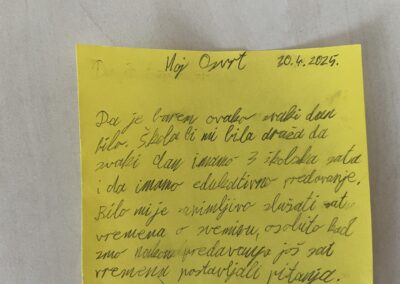 Moj Osvrt 20.4.2025.
Da je barem ovako svaki dan
bilo. Škola bi mi bila draža da
svaki dan imamo 3 školska sata
i da imamo edukativno predavanje.
Bilo mi je zanimljivo slušati sat
vremena o svemiru, osobito kad
smo nakon predavanja još sat
vremena postavljali pitanja.